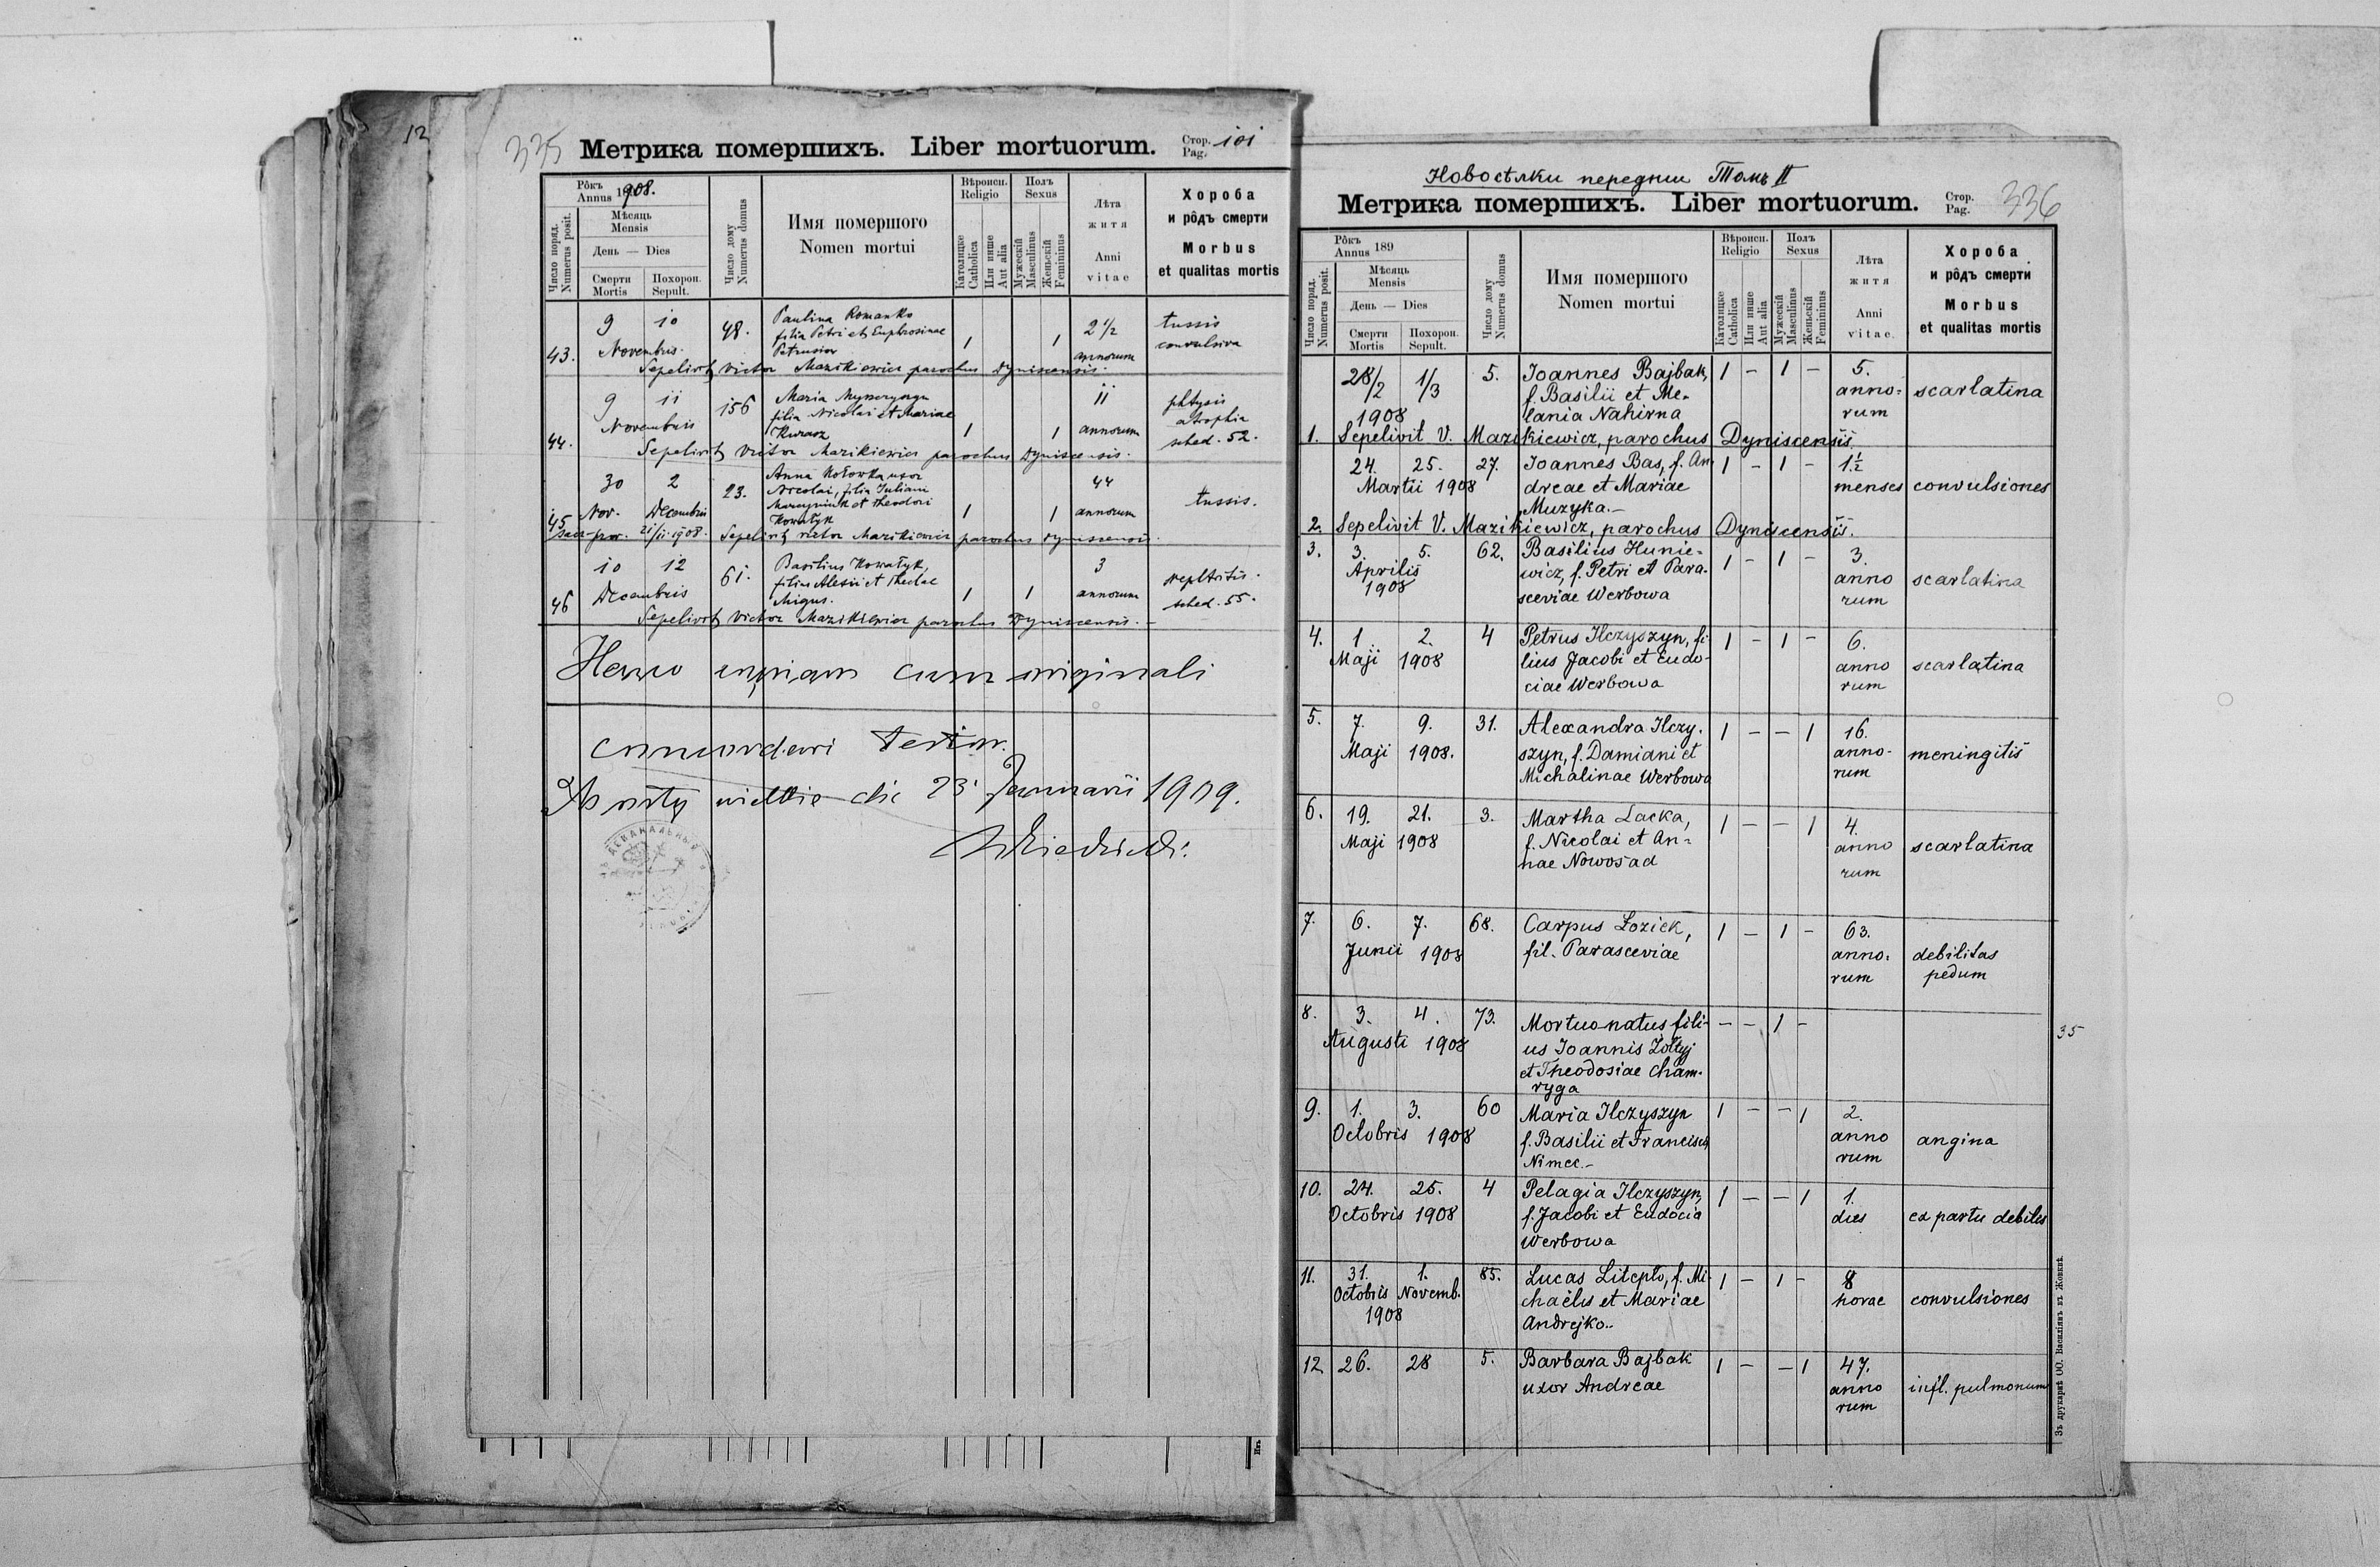 12
335 Метрика помершихъ. Liber mortuorum. Стор. Pag. 101
Рôкъ Annus 1908.
Число поряд. Numerus posit.
Мѣсяць Mensis
День — Dies
Смерти Mortis
Похорон. Sepult.
Число дому Numerus domus
Имя помершого
Nomen mortui
Вѣроисп. Religio
Католицке Catholica
Или инше Aut alia
Полъ Sexus
Мужескій Masculinus
Женьскій Femininus
Лѣта житя
Anni vitae
Хороба
и рôдъ смерти
Morbus
et qualitas mortis
43. 9 10 48. Paulina Romanko 1 1 2 1/2 tussis
Novembris filia Petri et Euphrosinae annorum convulsiva
Sepelivit Victor Mazikiewicz parochus Dyniscensis.
44. 9 11 156 Maria 1 1 11 phtysis
Novembris filia Nicolai et Mariae annorum atrophia
Kurasz sched. 52.
Sepelivit Victor Mazikiewicz parochus Dyniscensis.
45 30 2 23. Anna uxor 1 1 44 tussis.
Nov. Decembris Nicolai, filia Juliani annorum
et Theodori
Kowalyk
21/11 1908. Sepelivit Victor Mazikiewicz parochus Dyniscensis.
46 10 12 61. Basilius Kowałyk, 1 1 3
Decembris filius Alexii et Theclae annorum sched. 55.
Migus.
Sepelivit Victor Mazikiewicz parochus Dyniscensis. —
Hanc copiam cum originali
concordari testor.
wielkie die 23 Januarii 1909.
Новосѣлки передни Томъ II
Метрика помершихъ. Liber mortuorum. Стор. Pag. 336
Рôкъ Annus 189
Число поряд. Numerus posit.
Мѣсяць Mensis
День — Dies
Смерти Mortis
Похорон. Sepult.
Число дому Numerus domus
Имя помершого
Nomen mortui
Вѣроисп. Religio
Католицке Catholica
Или инше Aut alia
Полъ Sexus
Мужескій Masculinus
Женьскій Femininus
Лѣта житя
Anni vitae.
Хороба
и рôдъ смерти
Morbus
et qualitas mortis
28/2 1/3 5. Joannes Bajbak, 1 – 1 – 5.
f. Basilii et Me- anno= scarlatina
1908 lania Nahirna rum
1. Sepelivit V. Mazikiewicz, parochus Dyniscensis
24. 25. 27. Joannes Bas, f. An 1 – 1 – 1 1/2
Martii 1908 dreae et Mariae menses convulsiones
Muzyka.–
2. Sepelivit V. Mazikiewicz, parochus Dyniscensis.
3. 3. 5. 62. Basilius Hunie- 1 – 1 – 3.
Aprilis wicz, f. Petri et Para- anno scarlatina
1908 sceviae Werbowa rum
4. 1. 2. 4 Petrus Ilczyszyn, fi 1 – 1 – 6.
Maji 1908 lius Jacobi et Eudo- anno scarlatina
ciae Werbowa rum
5. 7. 9. 31. Alexandra Ilczy- 1 – – 1 16.
Maji 1908. szyn, f. Damiani et anno- meningitis
Michalinae Werbowa rum
6. 19. 21. 3. Martha Lacka, 1 – – 1 4.
Maji 1908 f. Nicolai et An= anno scarlatina
nae Nowosad rum
7. 6. 7. 68. Carpus Łoziek, 1 – 1 – 63.
Junii 1908 fil. Parasceviae anno= debilitas
rum pedum
8. 3. 4. 73. Mortuo natus fili- – – 1 –
Augusti 1908 us Joannis Żołtyj
et Theodosiae Cham-
ryga
35
9. 1. 3. 60 Maria Ilczyszyn 1 – – 1 2.
Octobris 1908 f. Basilii et Francisca anno angina
Nimec.– rum
10. 24. 25. 4 Pelagia Ilczyszyn, 1 – – 1 1.
Octobris 1908 f. Jacobi et Eudocia dies ex partu debilis
Werbowa
11. 31. 1. 85. Lucas Liteplo, f. Mi- 1 – 1 – 8
Octobris Novemb. chaëlis et Mariae horae convulsiones
1908 Andrejko..
12 26. 28 5. Barbara Bajbak 1 – – 1 47.
uxor Andreae anno infl. pulmonum
rum
Зъ друкарнѣ ОО. Василіянъ въ Жовквѣ